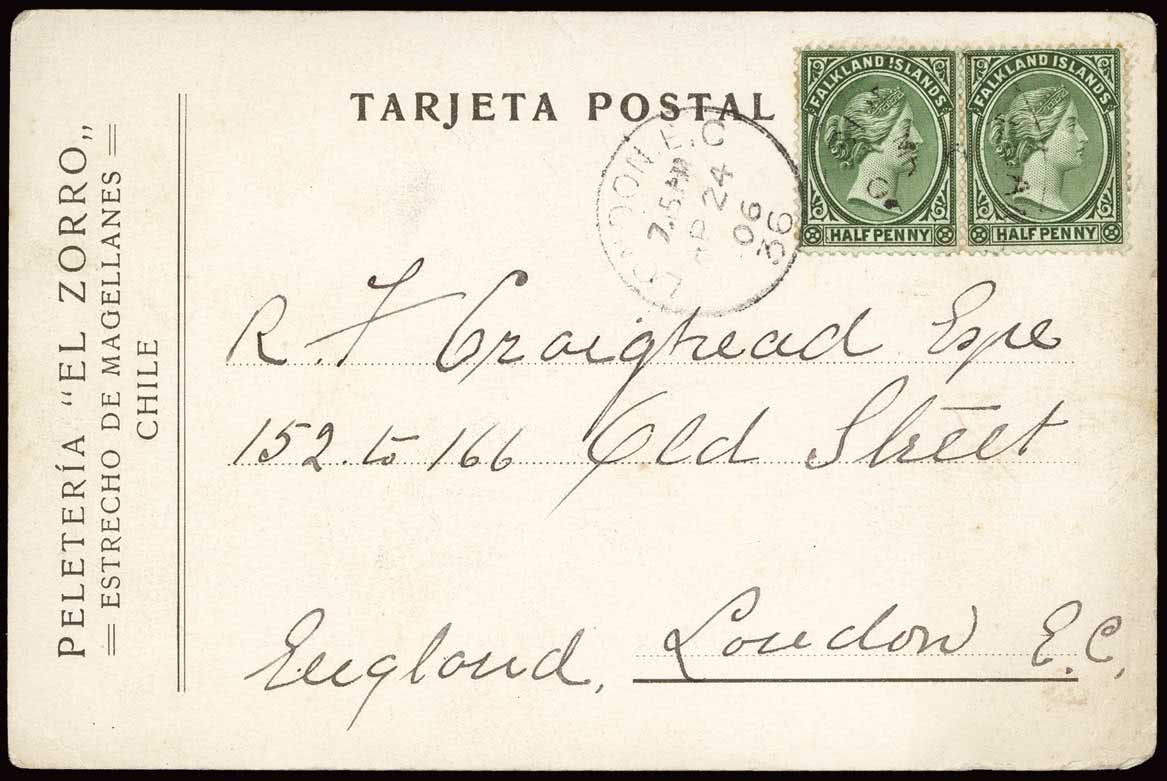 TARJETA POSTAL
PELETERÍA "EL ZORRO„
ESTRECHO DE MAGELLANES
CHILE
FALKLAND ISLANDS
HALF PENNY
FALKLAND ISLANDS
HALF PENNY
LONDON E.C
7.15 AM
AP 24
06
36
R. F Craighead Esqe
152. to 166 Old Street
England, London E.C,